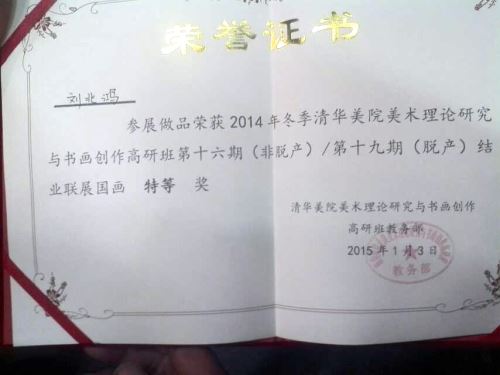 荣誉证书
刘北鸿
参展做品荣获2014年冬季清华美院美术理论研究
与书画创作高研班第十六期（非脱产）/第十九期（脱产）结
业联展国画 特等 奖
清华美院美术理论研究与书画创作
高研班教务部
2015年1月3日
教务部